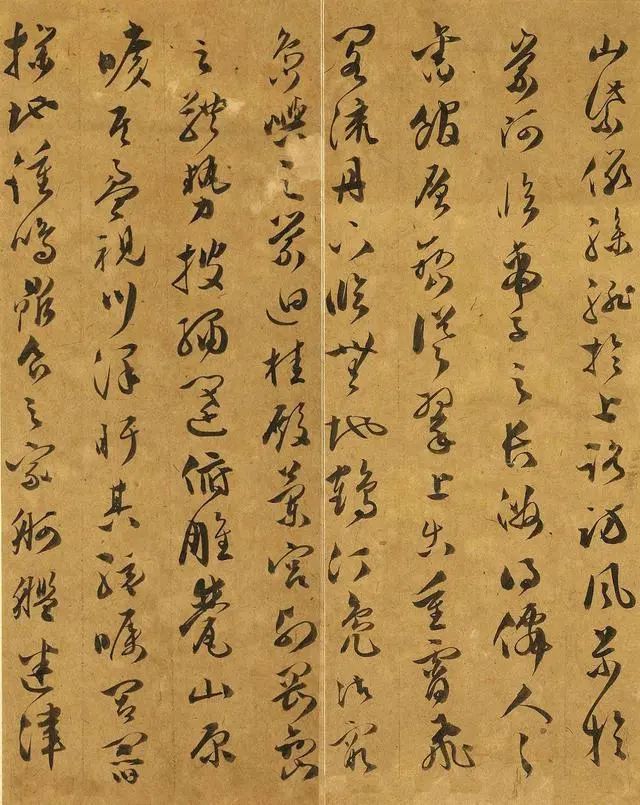 山紫儼驂騑於上路訪風景於
崇阿臨帝子之長洲得僊人之
舊館層巒聳翠上出重霄飛
閣流丹下臨無地鶴汀鳧渚窮
島嶼之縈迴桂殿蘭宮列岡巒
之體勢披繡闥俯雕甍山原
曠其盈視川澤盱其駭矚閭閻
撲地鐘鳴鼎食之家舸艦迷津